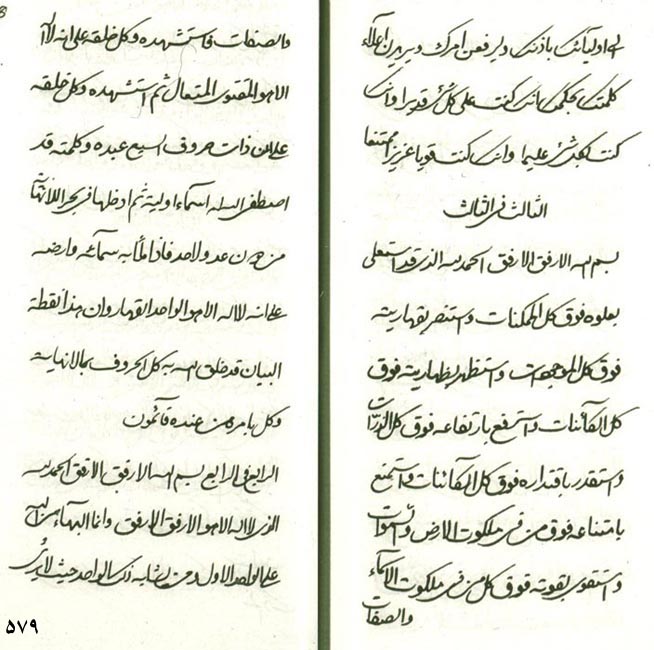 الی اولیائک باذنک ولیرفعن امرک ویریدن اعلاء
کلمتک بحکمک انک کنت علی کل شیء قدیرا وانک
کنت بکل شیء علیما وانک کنت قویا عزیزا ممتنعا
الثالث فی الثالث
بسم الله الارفق الارفق الحمد لله الذی قد استعلی
بعلوه فوق کل الممکنات واستنصر بقهاریته
فوق کل الموجودات واستظهر بظهاریته فوق
کل الکائنات واسترفع بارتفاعه فوق کل الذرات
واستقدر باقتداره فوق کل الکائنات واستمنع
بامتناعه فوق من فی ملکوت الارض والسموات
واستقوی بقوته فوق کل من فی ملکوت الاسماء
والصفات
والصفات فاستشهده وکل خلقه علی انه لا اله
الا هو المقتوی المتعال ثم استشهده وکل خلقه
علی ان ذات حروف السبع عبده وکلمته قد
اصطفی الله اسماء اولیة ثم ادخلها فی بحر اللانهایة
من دون عد ولا حد فاذا ملأ به سمائه وارضه
علی انه لا اله الا هو الواحد القهار وان هذا نقطة
البیان قد خلق الله به کل الحروف بما لانهایة
وکل بامره من عنده قائمون
الرابع فی الرابع بسم الله الارفق الارفق الحمد لله
الذی لا اله الا هو الارفق الارفق وانما البهاء من الله
علی الواحد الاول ومن یشابه ذلک الواحد حیث لا یری
۵۷۹